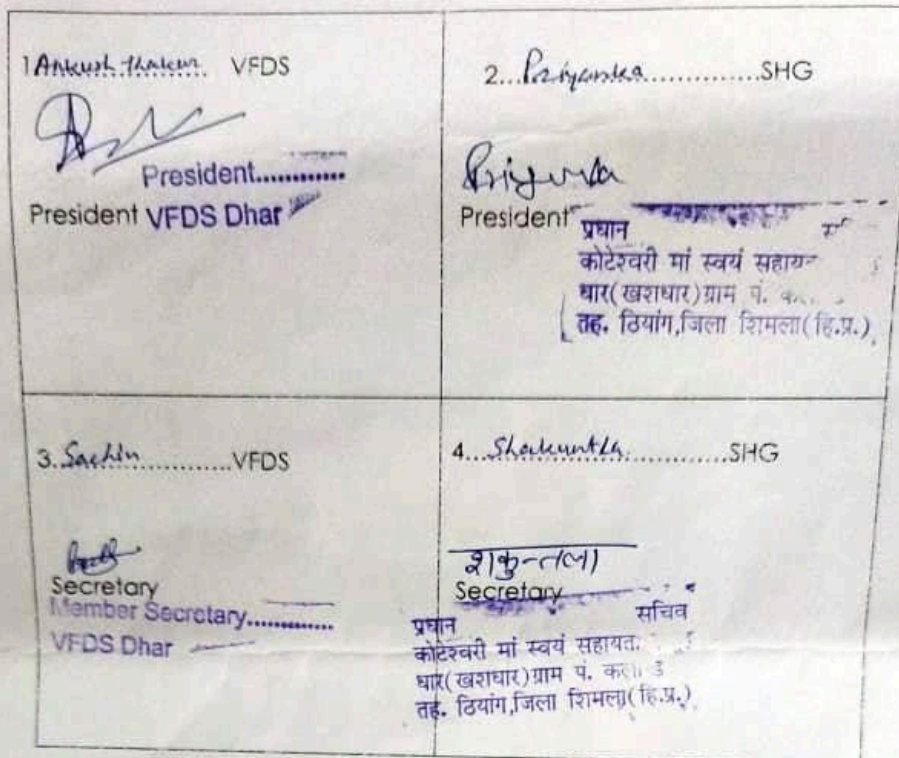 1 Ankush Thakur VFDS
President............
President VFDS Dhar
2...Priyanka..............SHG
Priyanka
President
प्रधान
कोटेश्वरी मां स्वयं
धार(खराधार)ग्राम पं.
तह. ठियोग,जिला शिमला(हि.प्र.)
3.Sachin............VFDS
Secretary
Member Secretary............
VFDS Dhar
4...Shakuntla..............SHG
शकुन्तला
Secretary
प्रधान सचिव
कोटेश्वरी मां स्वयं
धार(खराधार)ग्राम पं.
तह. ठियोग,जिला शिमला(हि.प्र.)